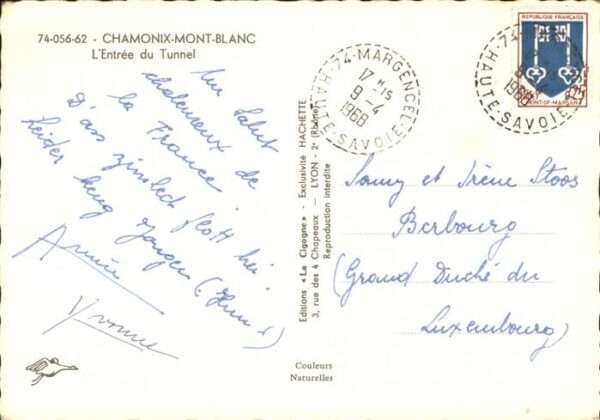 74-056-62 - CHAMONIX-MONT-BLANC
L'Entrée du Tunnel
Un salut
chaleureux de
la France
D'ass zimlech flott hei.
Leider keng Jongen (
Annie
Yvonne
Editions « La Cigogne » - Exclusivité HACHETTE
3, rue des 4 Chapeaux - LYON - 2e (Rhône)
Reproduction interdite
Couleurs
Naturelles
74-MARGENCEL
17 H15
9-4
1968
HAUTE-SAVOIE
74-
1968
HAUTE-SAVOIE
REPUBLIQUE FRANÇAISE
MONT-DE-MARSAN
Samy et Irène Stoos
Berbourg
(Grand Duché du
Luxembourg)